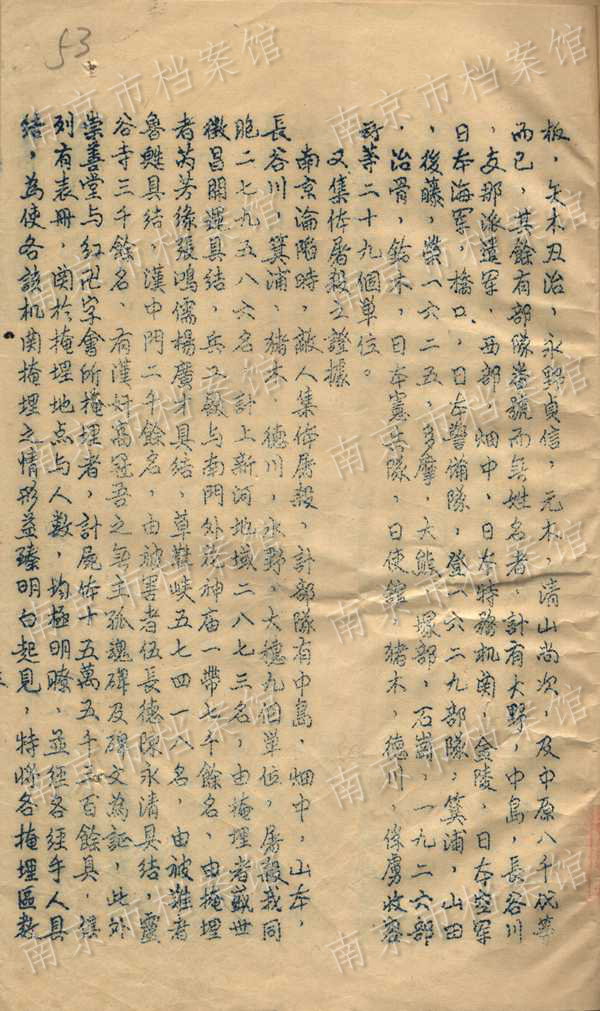 53
板，矢木丑治，永野貞信，元木，清山尚次，及中原八千代等
而已，其餘有部隊番號而無姓名者，計有大野，中島，長谷川
，支那派遣军，西部，畑中，日本特務机関，金陵，日本空军
日本海軍，橋口，日本警備隊，登一六二九部隊，箕浦，山田
，後藤，榮一六二五，多摩，大熊，塚部，石崗，一九二六部
，治骨，鈴木，日本憲兵隊，日使館，猪木，德川，俘虜收容
所等二十九個单位。
又集体屠殺之證據
南京淪陷時，敵人集体屠殺，計部隊有中島，畑中，山本，
長谷川，箕浦，猪木，德川，永野，大穗九個单位，屠殺我同
胞二七九五八六名，計上新河地域二八七三名，由掩埋者戴世
徵昌開運具结，兵工廠与南門外花神庙一帶七千餘名，由掩埋
者芮芳緣張鴻儒楊廣才具结，草鞋峽五七四一八名，由被难者
魯甦具结，漢中門二千餘名，由被害者伍長德陳永清具结，靈
谷寺三千餘名，有漢奸高冠吾之無主孤魂碑及碑文為証，此外
崇善堂与红卍字會所掩埋者，計屍体十五萬五千三百餘具，
列有表冊，関於掩埋地点与人数，均極明瞭，並經各經手人具
结，為使各该机関掩埋之情形益臻明白起見，特将各掩埋區数
南京市档案馆